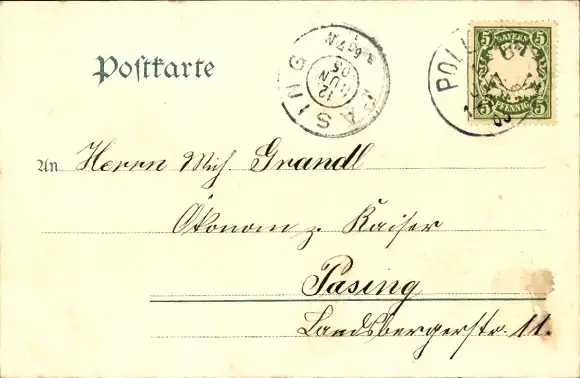 Postkarte
PASING
12 JUN 05
5 BAYERN 5
5 PFENNIG 5
An Herrn Mich. Grandl
Ökonom z. Kaiser
Pasing
Landsbergerstr. 11.